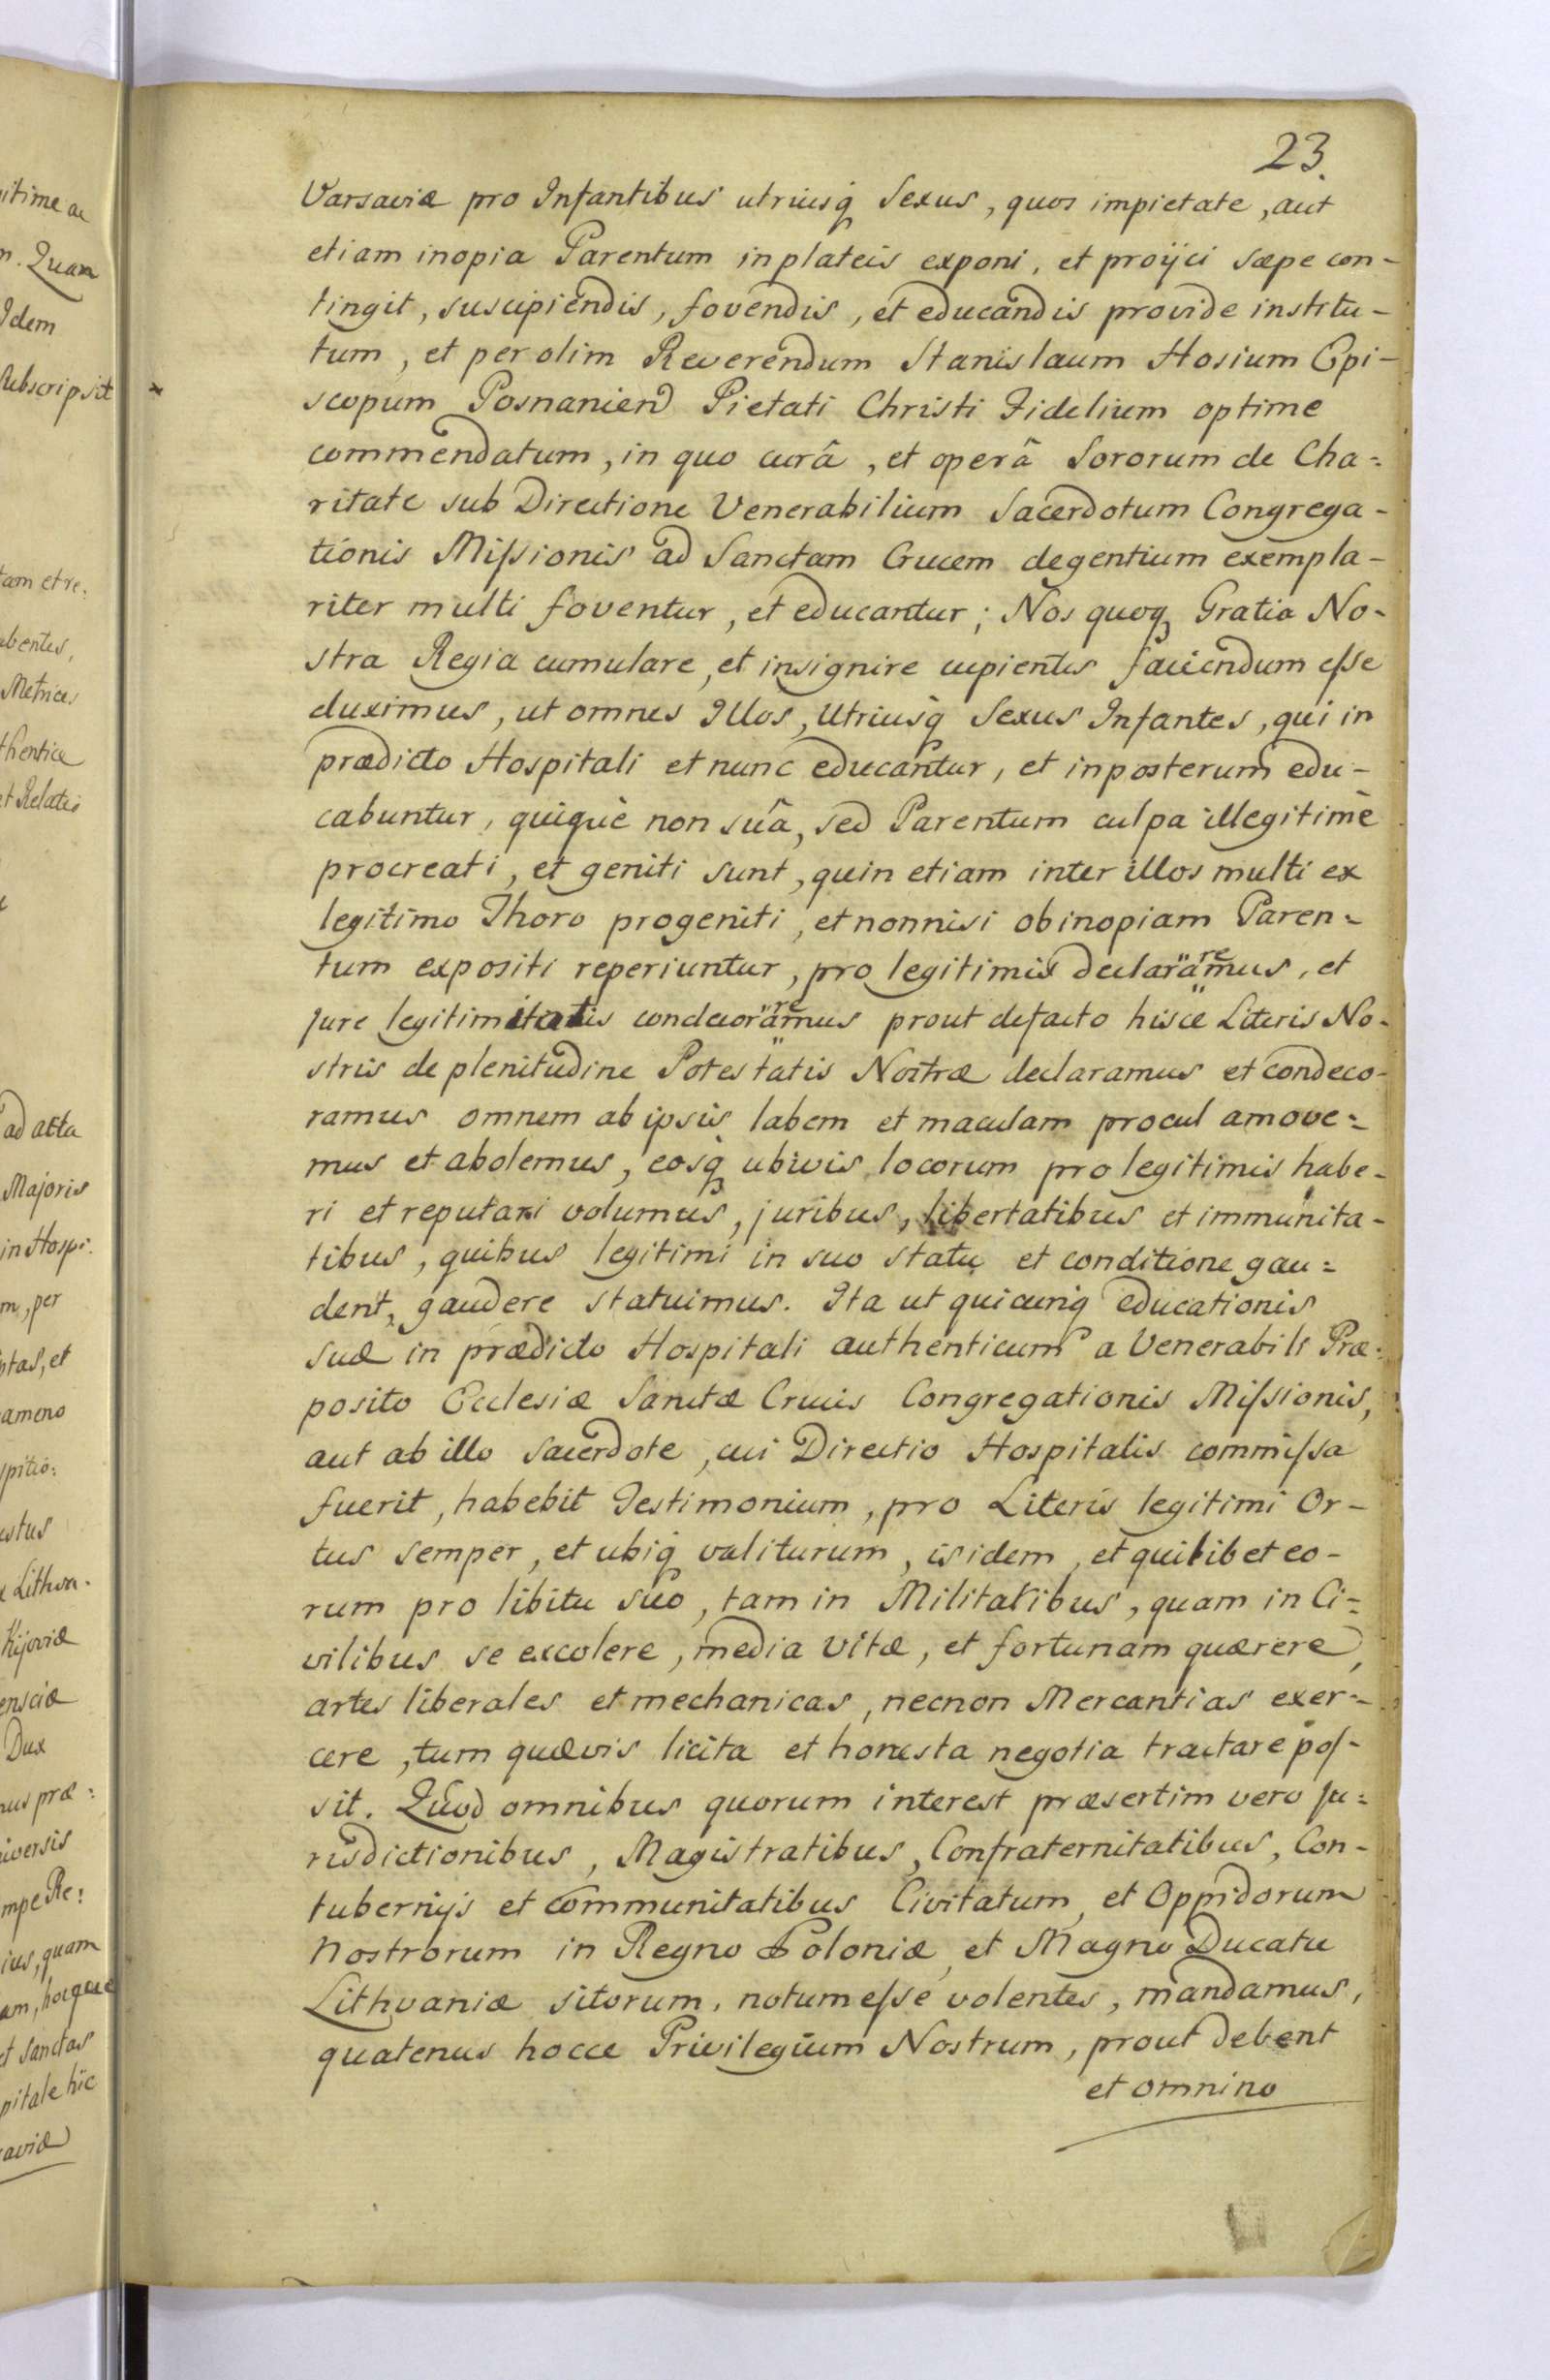 23.
Varsaviæ pro Infantibus utriusq̨ Sexus, quos impietate, aut
etiam inopia Parentum in plateis exponi, et proijci sæpe con-
tingit, suscipiendis, fovendis, et educandis provide institu-
tum, et per olim Reverendum Stanislaum Hosium Epi-
scopum Posnaniend Pietati Christi Fidelium optime
commendatum, in quo curâ, et operâ Sororum de Cha=
ritate sub Directione Venerabilium Sacerdotum Congrega-
tionis Missionis ad Sanctam Crucem degentium exempla-
riter multi foventur, et educantur; Nos quoq̨ Gratia No-
stra Regia cumulare, et insignire cupientes faciendum esse
duximus, ut omnes Illos, Utriusq̨ Sexus Infantes, qui in
prædicto Hospitali et nunc educantur, et in posterum edu-
cabuntur, quiquè non suâ, sed Parentum culpa illegitimè
procreati, et geniti sunt, quin etiam inter illos multi ex
legitimo Thoro progeniti, et nonnisi ob inopiam Paren=
tum expositi reperiuntur, pro legitimis declararemus, et
jure legitimitatis condecoraremus prout defacto hisce Literis No-
stris de plenitudine Potestatis Nostræ declaramus et condeco-
ramus omnem ab ipsis labem et maculam procul amove=
mus et abolemus, eosq̨ ubivis locorum pro legitimis habe-
ri et reputari volumus, juribus, libertatibus et immunita-
tibus, quibus legitimi in suo statu et conditione gau=
dent, gaudere statuimus. Ita ut quicunq̨ educationis
suæ in prædicto Hospitali authenticum a Venerabili Præ=
posito Ecclesiæ Sanctæ Crucis Congregationis Missionis,
aut ab illo Sacerdote, cui Directio Hospitalis commissa
fuerit, habebit Testimonium, pro Literis legitimi Or-
tus semper, et ubiq̨ valiturum, is idem, et quilibet eo-
rum pro libitu suo, tam in Militaribus, quam in Ci=
vilibus se excolere, media vitæ, et fortunam quærere,
artes liberales et mechanicas, necnon Mercantias exer=
cere, tum quævis licita et honesta negotia tractare pos-
sit. Quod omnibus quorum interest præsertim vero Ju=
risdictionibus, Magistratibus, Confraternitatibus, Con-
tubernijs et Communitatibus Civitatum, et Oppidorum
Nostrorum in Regno Poloniæ, et Magno Ducatu
Lithvaniæ sitorum, notum esse volentes, mandamus,
quatenus hocce Privilegium Nostrum, prout debent
et omnino
itime ac
n. Quam
Idem
subscripsit
tam et re:
abentes,
Metrices
thentice
et Relatis
ad acta
Majoris
in Hospi.
m, per
ptas, et
ameno
pitio:
Lithva.
Kijoviæ
ensciæ
Dux
us præ:
iversis
mpe Re:
ius, quam
am, hocque
et sanctas
pitale hic
aviæ